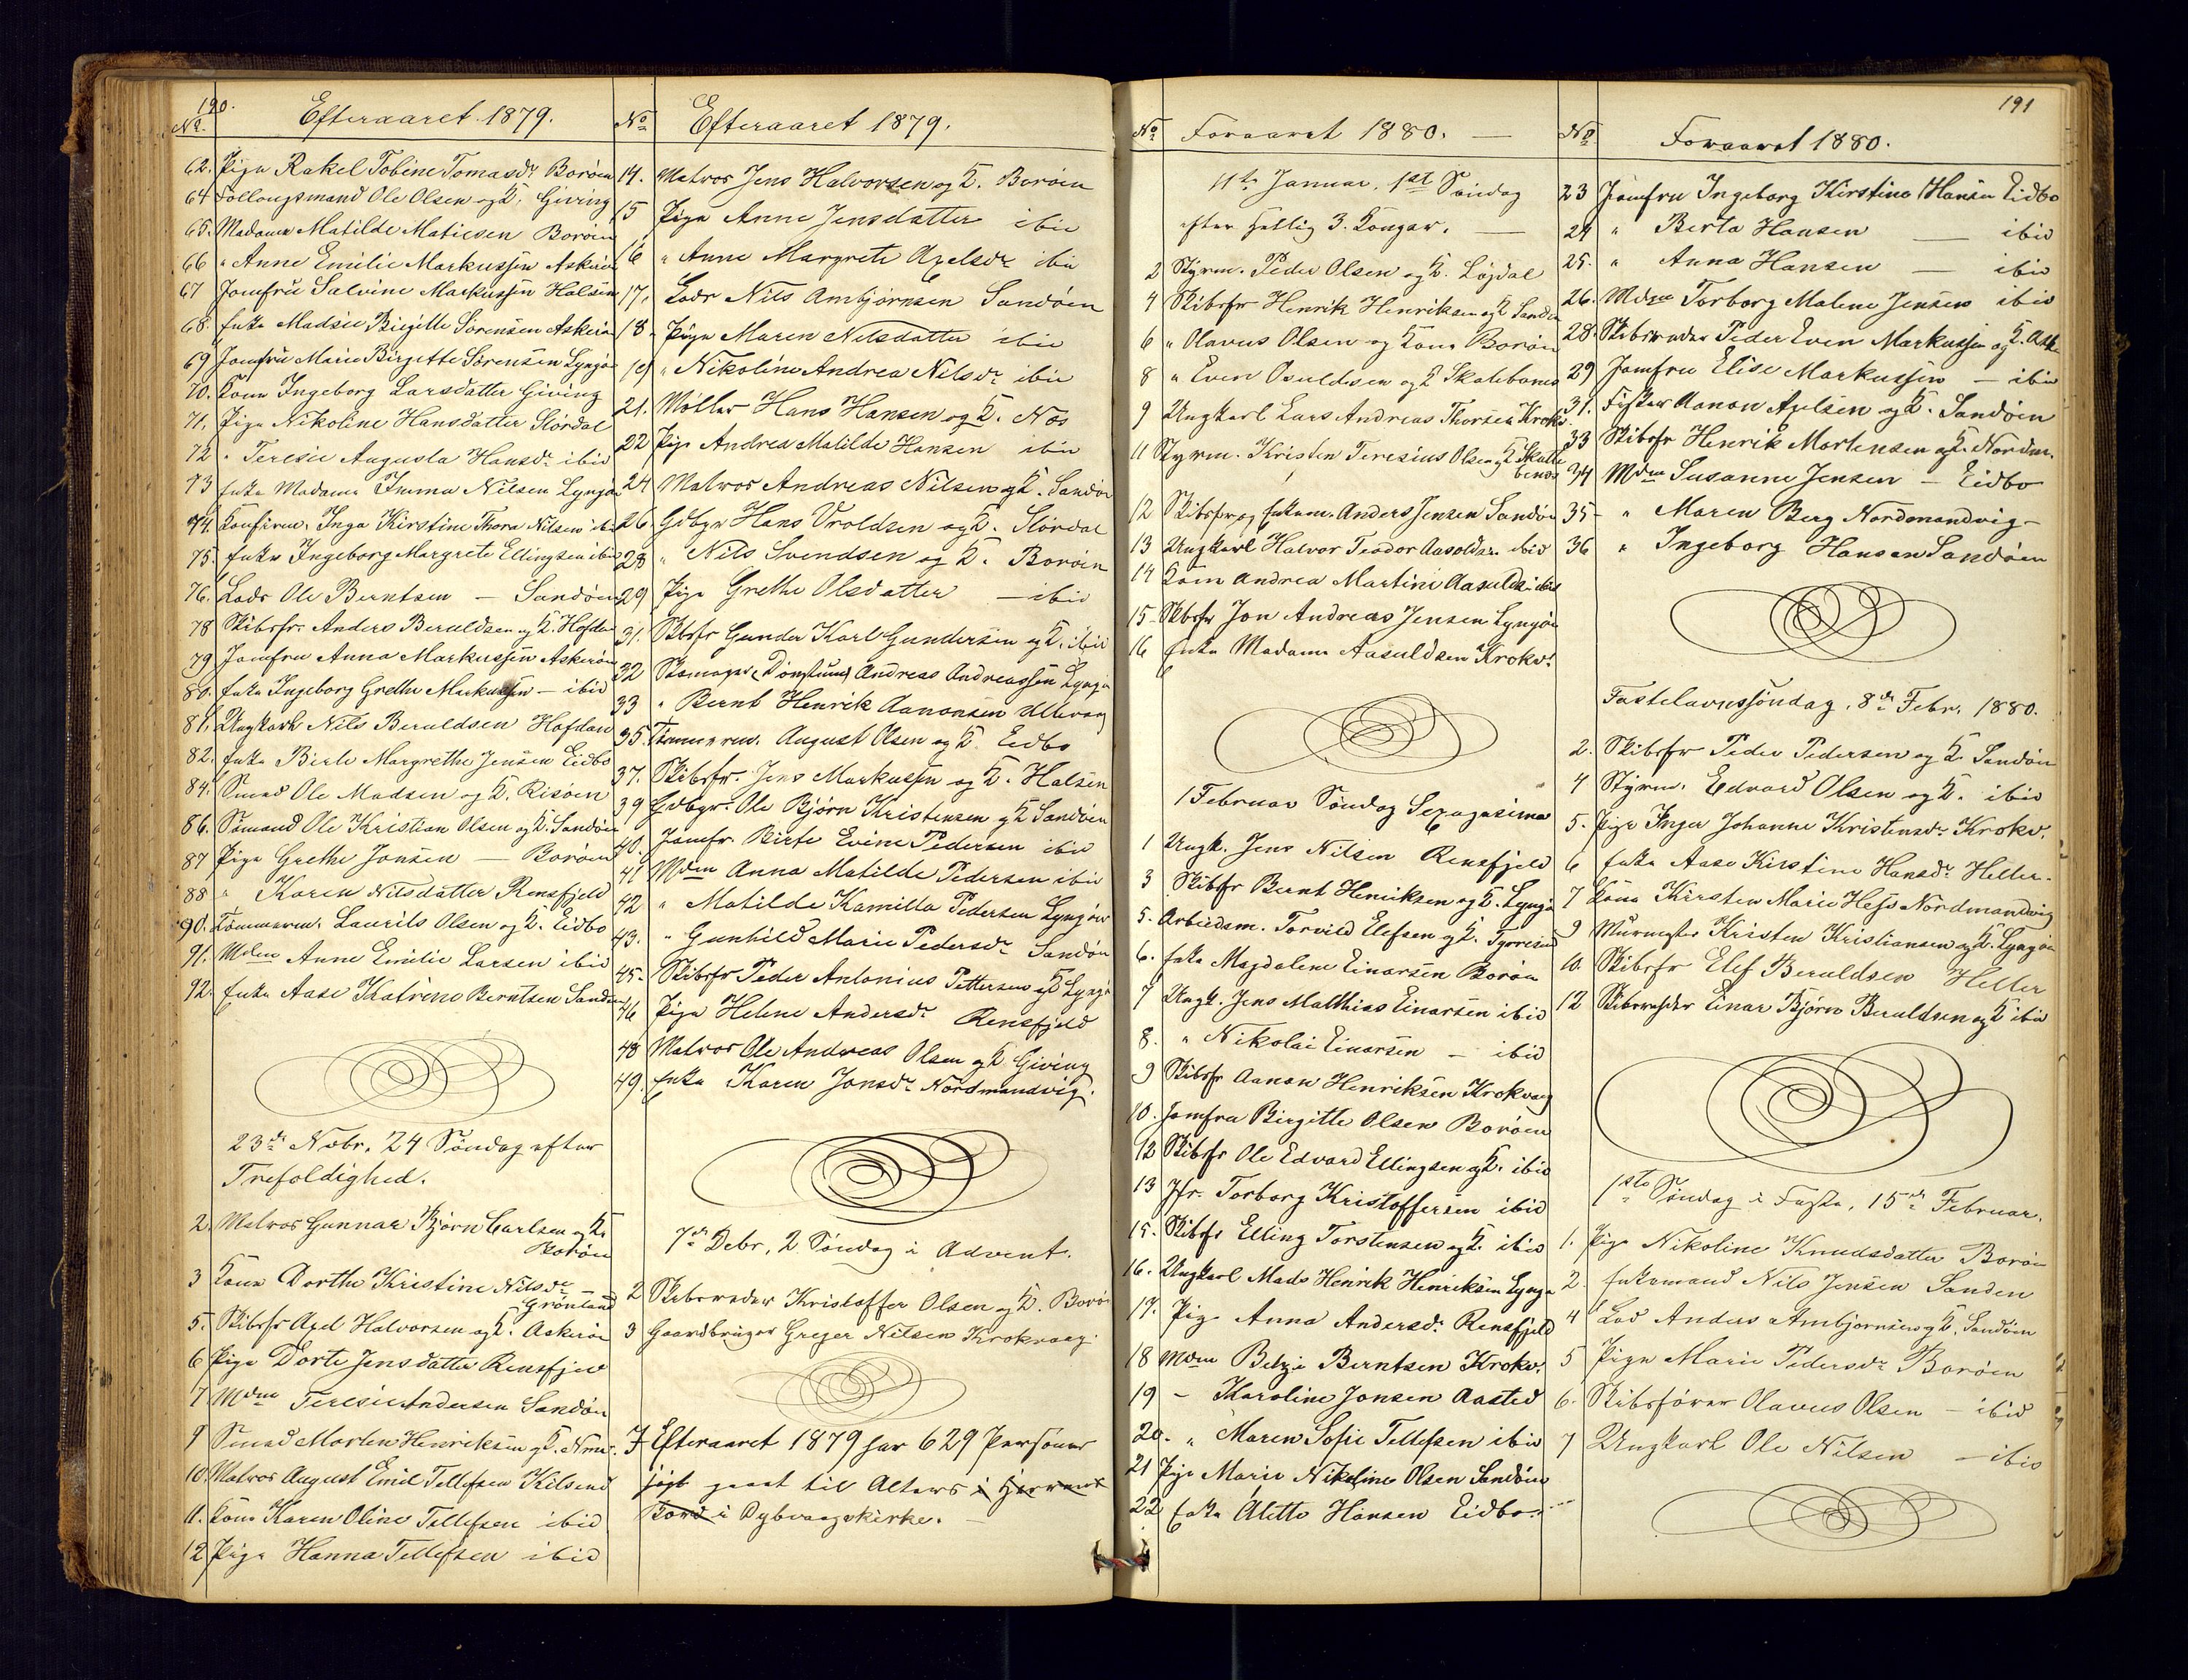 190.
No.
Efteraaret 1879.
62. Pige Rakel Tobine Tomasdr Borøen
64 Føllougsmand Ole Olsen og K. Giving
65. Madame Matilde Matiesen Borøen
66 " Anne Emilie Markussen Askerøen
67 Jomfru Salvine Markussen Halsen
68. Enke Madsie Birgitte Sørensen Askerøen
69 Jomfru Marie Birgitte Sørensen Lyngør
70. Kone Ingeborg Larsdatter Giving
71. Pige Nikoline Hansdatter Størdal
72 " Teresie Augusta Hansdr ibid
73 Enke Madame Emma Nilsen Lyngør
74. Konfirm. Inga Kirstine Thora Nilsen ibid
75. Enke Ingeborg Margrete Ellingsen ibid
76. Lods Ole Berntsen – Sandøen
78 Skibsfr. Anders Beruldsen og K. Hofdan
79 Jomfru Anna Markussen Askerøen
80. Enke Ingeborg Grethe Markussen – ibid
81. Ungkarl Nils Beruldsen Hafdan
82. Enke Birte Margrethe Jensen Eidbo
84. Smed Ole Madsen og K. Risøen
86. Sømand Ole Kristian Olsen og K. Sandøen
87 Pige Grethe Jonsen – Borøen
88 " Karen Nilsdatter Rensfjeld
90. Tømmerm. Laurits Olsen og K. Eidbo
91. Mdm Anne Emilie Larsen ibid
92. Enke Aase Katrine Berntsen Sandøen
23de Novbr. 24 Søndag efter
Trefoldighed.
2. Matros Gunnar Bjørn Carlsen og K.
Borøen
3 Kone Dorthe Kristine Nilsdr –
Grønland
5. Skibsfr Axel Halvorsen og K. Askerøen
6 Pige Dorte Jensdatter Rensfjeld
7 Mdm Teresie Andersen Sandøen
9 Smed Morten Henriksen og K.
10. Matros August Emil Tellefsen Kilsund
11. Kone Karen Oline Tellefsen ibid
12 Pige Hanna Tellefsen ibid
No
Efteraaret 1879.
14. Matros Jens Halvorsen og K. Borøen
15 Pige Anne Jensdatter ibid
16 " Anne Margrete Axelsdr ibid
17. Lods Nils Ambjørnsen Sandøen
18 Pige Maren Nilsdatter ibid
19 " Nikoline Andrea Nilsdr ibid
21. Møller Hans Hansen og K. Næs
22 Pige Andrea Matilde Hansen ibid
24 Matros Andreas Nilsen og K. Sandøen
26. Gdbgr Hans Vroldsen og K. Størdal
28 " Nils Svendsen og K. Borøen
29 Pige Grethe Olsdatter – ibid
31. Skbsfr Gunder Karl Gundersen og K. ibid
32 Skomager Andreas Andreassen Lyngør
33 " Bernt Henrik Aanonsen
35. Tømmerm. August Olsen og K. Eidbo
37. Skibsfr. Jens Markussen og K. Halsen
39 Gdbgr. Ole Bjørn Kristensen og K Sandøen
40. Jomfr. Birte Evine Pedersen ibid
41 Mdm Anna Matilde Pedersen ibid
42 " Matilde Kamilla Pedersen Lyngør
43. " Gunhild Marie Pedersdr Sandøen
45. Skibsfr Peder Antonius Pettersen og K Lyngør
46 Pige Helene Andersdr Rensfjeld
48 Matros Ole Andreas Olsen og K Giving
49. Enke Karen Jonsdr Nordmandvig.
7de Debr, 2 Søndag i Advent.
2 Skibsreder Kristoffer Olsen og K. Borøen
3 Gaardbruger Greger Nilsen Krokvaag.
I Efteraaret 1879 har 629 Personer
søgt gaaet til Alters i Herrens
Bord i Dybvaagskirke. –
No
Foraaret 1880. –
11te Januar, 1st Søndag
efter Hellig 3 Konger. –
2 Styrm. Peder Olsen og K. Løgdal
4 Skibsfr Henrik Henriksen og K Sanden
6 " Olavus Olsen og Kone Borøen
8 " Even Osuldsen og K Skatebones
9 Ungkarl Lars Andreas Thorsen Krokv.
11 Styrm. Kristen Teresius Olsen og K Skate
benes
12 Skibsfr og Enkem. Anders Jensen Sandøen
13 Ungkarl Halvor Teodor Aasuldsen ibid
14 Kone Andrea Martine Aasulds. ibid
15 Skbsfr Jon Andreas Jensen Lyngør
16 Enke Madame Aasuldsen Krokv.
1 Februar Søndag Sexagesima
1 Ungk. Jens Nilsen Rensfjeld
3 Skibsfr Bernt Henriksen og K. Lyngør
5. Arbeidsm. Torvild Elefsen og K.
6. Enke Magdalene Einarsen Borøen
7 Ungk. Jens Matthias Einarsen ibid
8. " Nikolai Einarsen – ibid
9 Skibsfr Aanon Henriksen Krokvaag
10. Jomfru Birgitte Olsen Borøen
12 Skibsfr Ole Edvard Ellingsen og K. ibid
13 Jfr. Torborg Kristoffersen ibid
15. Skibsfr Elling Torstensen og K. ibid
16. Ungkarl Mads Henrik Henriksen Lyngør
17. Pige Anna Andersdr. Rensfjeld
18 Mdm Betzi Berntsen Krokv.
19 – Karoline Jonsen Aasted
20. " Maren Sofie Tellefsen ibid
21 Pige Marie Nikoline Olsen Sandøen
22 Enke Alette Hansen Eidbo.
191
No
Foraaret 1880.
23 Jomfru Ingeborg Kirstine Hansen Eidbo
24 " Berta Hansen – ibid
25. " Anna Hansen – ibid
26. Mdm Torborg Malene Jensen ibid
28. Skibsreder Peder Even Markussen og K. Ask.
29 Jomfru Elise Markussen – ibid
31. Fisker Aanon Axelsen og K. Sandøen
33 Skibsfr Henrik Mortensen og K. Nordm.
34 Mdm Susanne Jensen – Eidbo
35 – " Maren Berg Nordmandvig –
36 " Ingeborg Hansen Sandøen
Fastelavnssøndag, 8de Febr. 1880.
2. Skibsfr Peder Pedersen og K. Sandøen
4 Styrm. Edvard Olsen og K. ibid
5. Pige Inger Johanne Kristensdr Krokv.
6 Enke Aase Kirstine Hansdr Heller.
7 Kone Kirsten Marie Hess Nordmandvig
9 Murmester Kristen Kristiansen og K. Lyngør
10. Skibsfr Elef Beruldsen Heller
12 Skibsreder Einar Bjørn Beruldsen og K ibid
1ste Søndag i Faste, 15de Februar.
1. Pige Nikoline Knudsdatter Borøen
2. Enkemand Nils Jensen Sanden
4 Lods Anders Ambjørnsen og K. Sandøen
5 Pige Marie Pedersdr Borøen
6. Skibsfører Olavus Olsen – ibid
7 Ungkarl Ole Nilsen – ibid